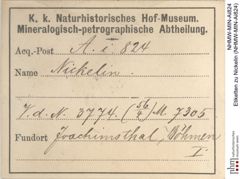 K. k. Naturhistorisches Hof-Museum.
Mineralogisch-petrographische Abtheilung.
Acq.-Post A. i. 824
Name Nickelin.
V. d. N. 3774. (56/2) M 7305
Fundort Joachimsthal, Böhmen
I.
NHMW-MIN-Ai824
Etiketten zu Nickelin (NHMW-MIN-Ai824)
nhm